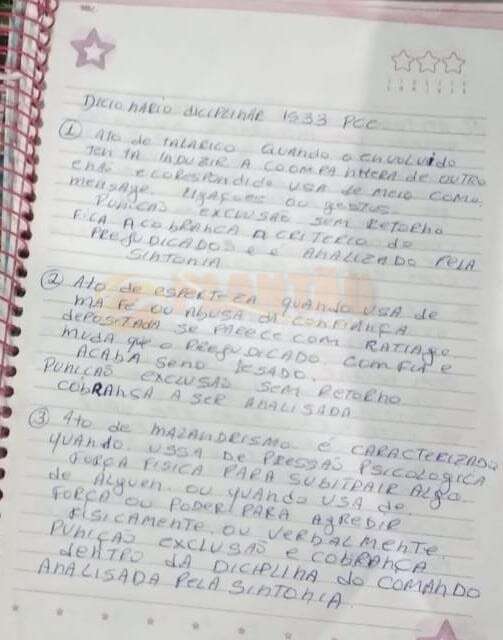 DICIONARIO DICIPLINAR 1533 PCC
① Ato de TALARICO QUANDO o ENVOLVIDO
TENTA INDUZIR A COOMPANHERA DE OUTRO
E CORESPONDIDO USA DE MEIO COMO.
MENSAGE. LIGAÇOES OU GESTUS.
PUNIÇAO EXCLUSAO SEM RETORNO
FICA A COBRANCA A CRITERIO do
PREJUDICADO E ANALIZADO PELA
SINTONIA
② Ato de ESPERTEZA QUANDO USA de
MA FÉ OU ABUSA DA CONFIANÇA
dEPOSITADA SE PARECE COM RATIAGE
MUDA QUE O PREJUDICADO CONFIA E
ACABA SENO LESADO.
PUNICAO EXCLUSAO SEM RETORNO
COBRANSA A SER ANALISADA
③ Ato de MAZANDRISMO É CARACTERIZADO
QUANdo USSA DE PRESSAO PSICOLOGICA
FORÇA FISICA PARA SUBITRAIR ALGO
de ALGUEN. OU QUANdo USA de
FORCA OU PODER PARA AGREDIR
FISICAMENTE OU VERBALMENTE
PUNICAO EXCLUSAO E COBRANÇA
dENTRO DA DICIPLINA do COMANDO
ANALISADA PELA SINTONIA